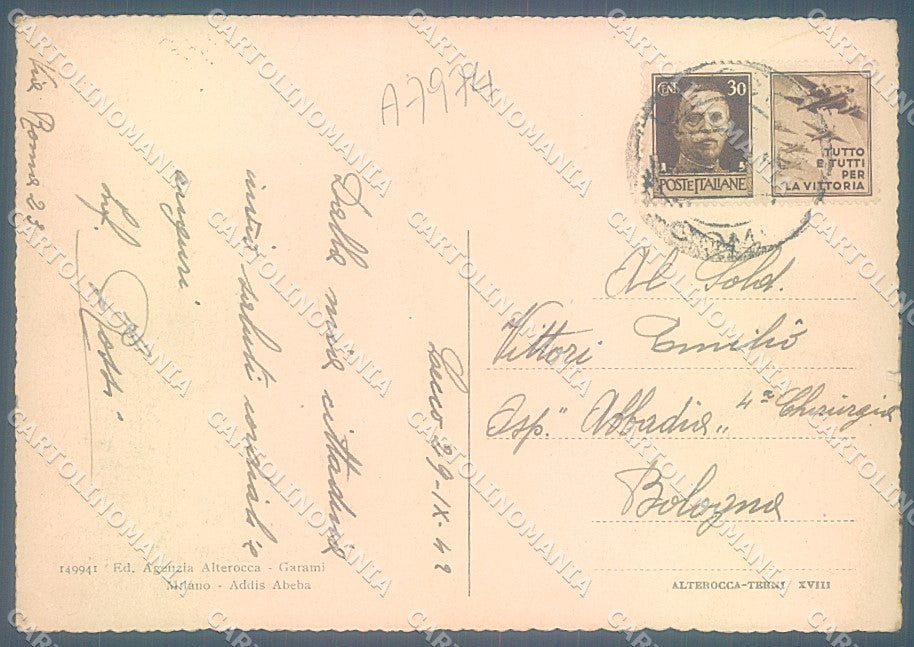 Via Roma 23
A-7974
Lecco 29-IX-42
Dalla mia cittadina
invio saluti cordiali e
auguri
CENT 30
POSTE ITALIANE
TUTTO
E TUTTI
PER
LA VITTORIA
Al Sold.
Vittori Emilio
Osp. "Abbadia" 4ª Chirurgia
Bologna
149941 Ed. Agenzia Alterocca - Garami
Milano - Addis Abeba
ALTEROCCA-TERNI XVIII
CARTOLINOMANIA